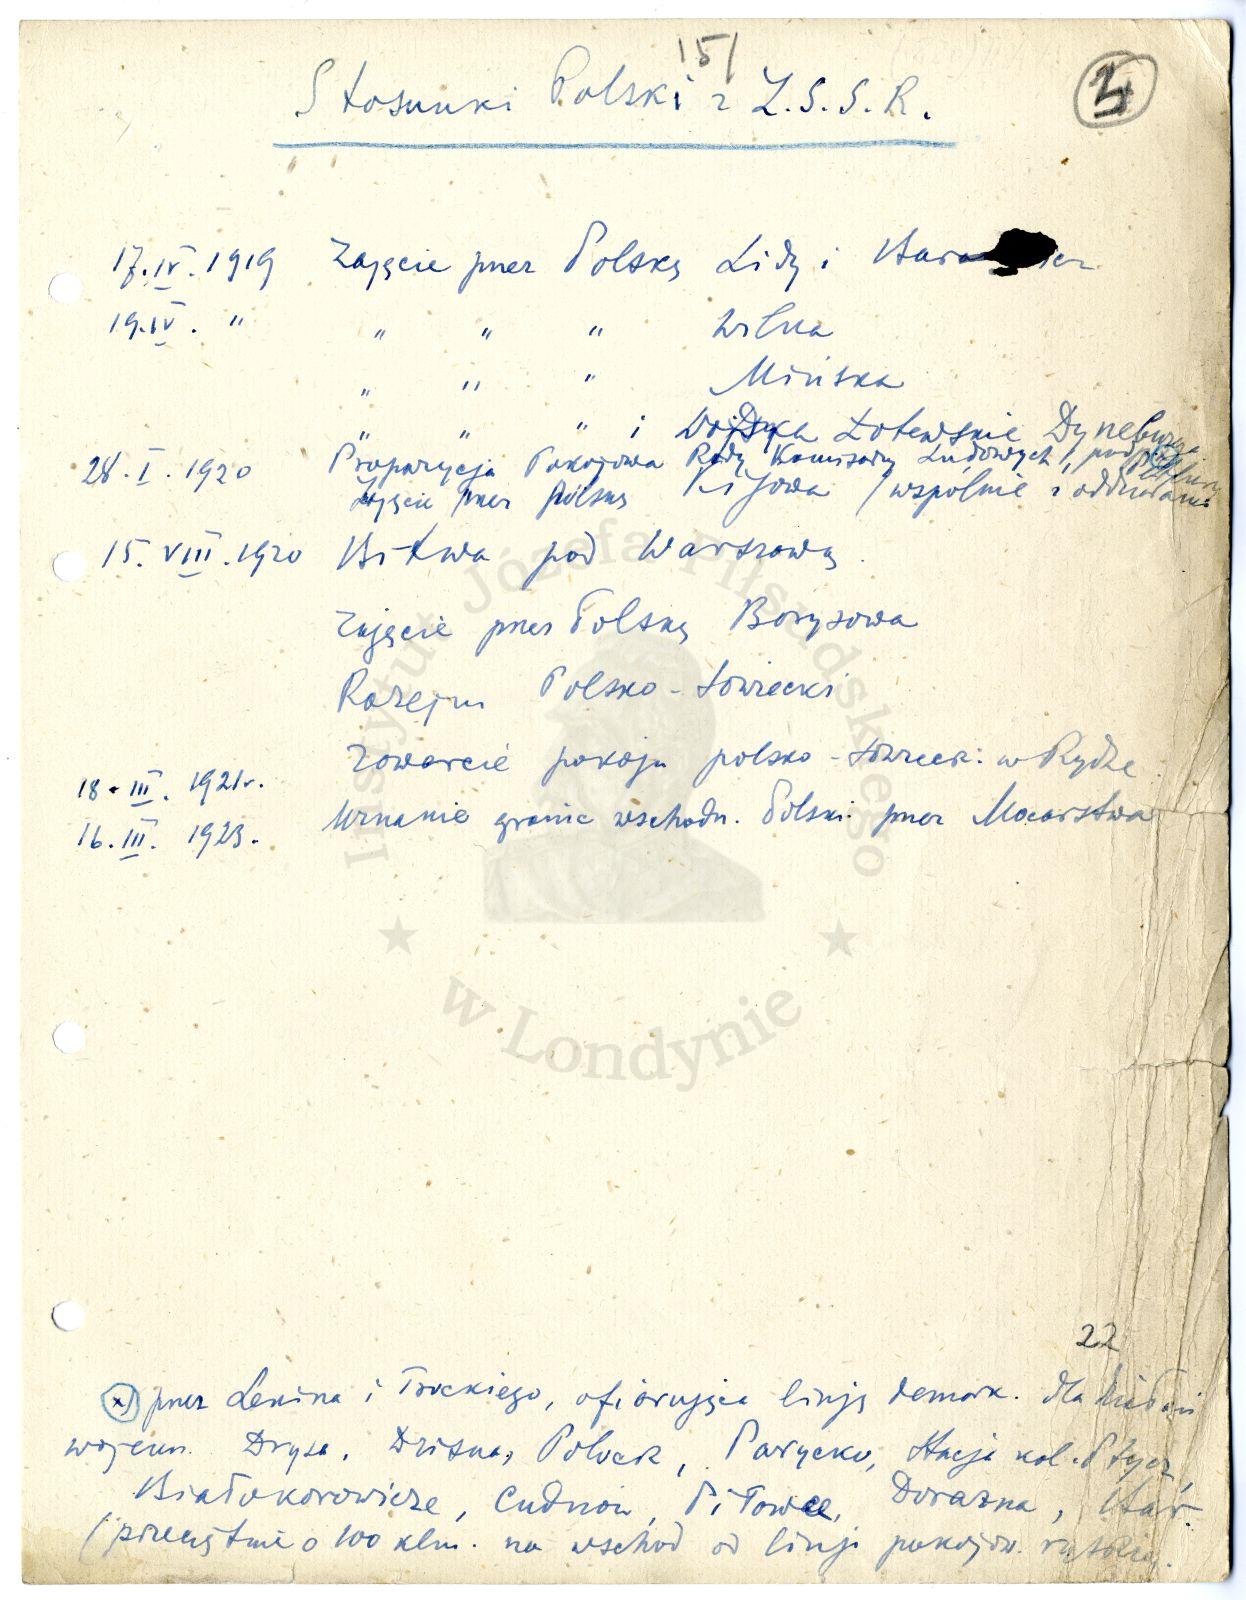 15/
Stosunki Polski z Z.S.S.R.
3
17.IV.1919 Zajęcie przez Polskę Lidy i
19.IV. " " " " Wilna
" " " Mińska
" " " i Wojska Łotewskie Dyneburga
28.I.1920 Propozycja Pokojowa Rady Komisarzy Ludowych,
Zajęcie przez Polskę Kijowa /wspólnie z oddziałami
15.VIII.1920 Bitwa pod Warszawą
Zajęcie przez Polskę Borysowa
Rozejm Polsko-Sowiecki
Zawarcie pokoju polsko-sowieck: w Rydze
18.III.1921r.
16.III.1923. Uznanie granic wschodn. Polski przez Mocarstwa
Instytut Józefa Piłsudskiego
w Londynie
22
x) przez Lenina i Trockiego, ofiarująca linję demark. dla działań
wojenn. Dryssa, Dzisna, Połock, Parycko, Stacja kol. Ptycz,
Białokorowicze, Cudnów, Piławce, Derażna,
(przeciętnie o 100 klm. na wschód od linji pokojow. ryskiej.